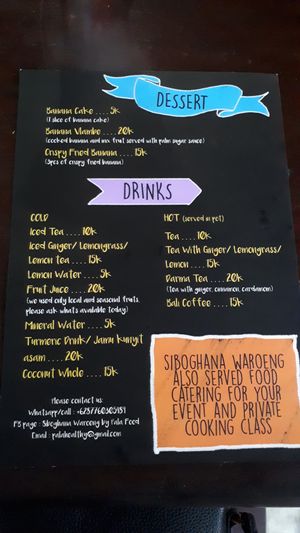 DESSERT
Banana Cake .... 5k
(1 slice of banana cake)
Banana Vlambe .... 20k
(cooked banana and mix fruit served with palm sugar sauce)
Crispy Fried Banana .... 15k
(3pcs of crispy fried banana)
DRINKS
COLD
Iced Tea .... 10k
Iced Ginger/ Lemongrass/
Lemon Tea .... 15k
Lemon Water .... 5k
Fruit Juice .... 20k
(we used only local and seasonal fruits,
please ask whats available today)
Mineral Water .... 5k
Turmeric Drink/ Jamu Kunyit
asam .... 20k
Coconut Whole .... 15k
HOT (served in pot)
Tea .... 10k
Tea With Ginger/ Lemongrass/
Lemon .... 15k
Darma Tea .... 20k
(Tea with ginger, cinnamon, cardamom)
Bali Coffee .... 15k
SIBOGHANA WAROENG
ALSO SERVED FOOD
CATERING FOR YOUR
EVENT AND PRIVATE
COOKING CLASS
Please contact us :
Whatsapp/call :
FB page : Siboghana Waroeng by Pala Food
Email : palahealthy@gmail.com